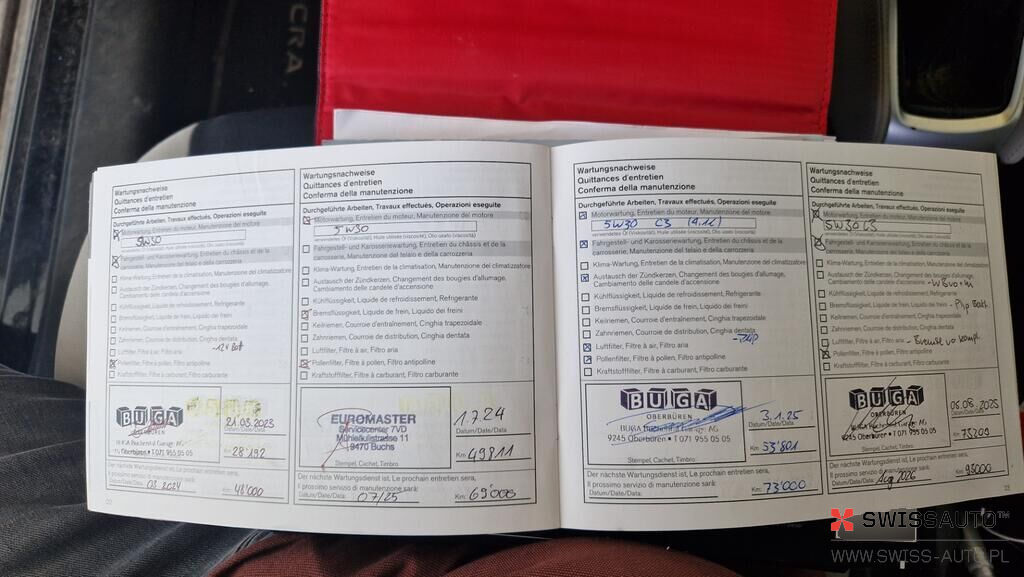 CRA
Wartungsnachweise
Quittances d'entretien
Conferma della manutenzione
Durchgeführte Arbeiten, Travaux effectués, Operazioni eseguite
Motorwartung, Entretien du moteur, Manutenzione del motore
5W30
verwendetes Öl (Viskosität), Huile utilisée (viscosité), Olio usato (viscosità)
Fahrgestell- und Karosseriewartung, Entretien du châssis et de la
carrosserie, Manutenzione del telaio e della carrozzeria
Klima-Wartung, Entretien de la climatisation, Manutenzione del climatizzatore
Austausch der Zündkerzen, Changement des bougies d'allumage,
Cambiamento delle candele d'accensione
Kühlflüssigkeit, Liquide de refroidissement, Refrigerante
Bremsflüssigkeit, Liquide de frein, Liquido dei freni
Keilriemen, Courroie d'entraînement, Cinghia trapezoidale
Zahnriemen, Courroie de distribution, Cinghia dentata
- 12V Bat
Luftfilter, Filtre à air, Filtro aria
Pollenfilter, Filtre à pollen, Filtro antipolline
Kraftstofffilter, Filtre à carburant, Filtro carburante
BUGA
OBERBÜREN
BUGA Buchental Garage AG
Oberbüren • T 071 955 05 05
21.03.2023
Datum/Date/Data
Km: 28'192
Der nächste Wartungsdienst ist, Le prochain entretien sera,
Il prossimo servizio di manutenzione sarà:
Datum/Date/Data: 03.2024 Km: 48'000
Wartungsnachweise
Quittances d'entretien
Conferma della manutenzione
Durchgeführte Arbeiten, Travaux effectués, Operazioni eseguite
Motorwartung, Entretien du moteur, Manutenzione del motore
5W30
verwendetes Öl (Viskosität), Huile utilisée (viscosité), Olio usato (viscosità)
Fahrgestell- und Karosseriewartung, Entretien du châssis et de la
carrosserie, Manutenzione del telaio e della carrozzeria
Klima-Wartung, Entretien de la climatisation, Manutenzione del climatizzatore
Austausch der Zündkerzen, Changement des bougies d'allumage,
Cambiamento delle candele d'accensione
Kühlflüssigkeit, Liquide de refroidissement, Refrigerante
Bremsflüssigkeit, Liquide de frein, Liquido dei freni
Keilriemen, Courroie d'entraînement, Cinghia trapezoidale
Zahnriemen, Courroie de distribution, Cinghia dentata
Luftfilter, Filtre à air, Filtro aria
Pollenfilter, Filtre à pollen, Filtro antipolline
Kraftstofffilter, Filtre à carburant, Filtro carburante
EUROMASTER
Servicecenter 7VD
Mühleäulistrasse 11
9470 Buchs
Stempel, Cachet, Timbro
1.7.24
Datum/Date/Data
Km: 49811
Der nächste Wartungsdienst ist, Le prochain entretien sera,
Il prossimo servizio di manutenzione sarà:
Datum/Date/Data: 07/25 Km: 69'000
Wartungsnachweise
Quittances d'entretien
Conferma della manutenzione
Durchgeführte Arbeiten, Travaux effectués, Operazioni eseguite
Motorwartung, Entretien du moteur, Manutenzione del motore
5W30 C3 (4.1L)
verwendetes Öl (Viskosität), Huile utilisée (viscosité), Olio usato (viscosità)
Fahrgestell- und Karosseriewartung, Entretien du châssis et de la
carrosserie, Manutenzione del telaio e della carrozzeria
Klima-Wartung, Entretien de la climatisation, Manutenzione del climatizzatore
Austausch der Zündkerzen, Changement des bougies d'allumage,
Cambiamento delle candele d'accensione
Kühlflüssigkeit, Liquide de refroidissement, Refrigerante
Bremsflüssigkeit, Liquide de frein, Liquido dei freni
Keilriemen, Courroie d'entraînement, Cinghia trapezoidale
Zahnriemen, Courroie de distribution, Cinghia dentata
Luftfilter, Filtre à air, Filtro aria
Pollenfilter, Filtre à pollen, Filtro antipolline
Kraftstofffilter, Filtre à carburant, Filtro carburante
BUGA
OBERBÜREN
BUGA
9245 Oberbüren • T 071 955 05 05
Stempel, Cachet, Timbro
3.1.25
Datum/Date/Data
Km: 53'801
Der nächste Wartungsdienst ist, Le prochain entretien sera,
Il prossimo servizio di manutenzione sarà:
Datum/Date/Data: Km: 73'000
Wartungsnachweise
Quittances d'entretien
Conferma della manutenzione
Durchgeführte Arbeiten, Travaux effectués, Operazioni eseguite
Motorwartung, Entretien du moteur, Manutenzione del motore
5W30 C3
verwendetes Öl (Viskosität), Huile utilisée (viscosité), Olio usato (viscosità)
Fahrgestell- und Karosseriewartung, Entretien du châssis et de la
carrosserie, Manutenzione del telaio e della carrozzeria
Klima-Wartung, Entretien de la climatisation, Manutenzione del climatizzatore
Austausch der Zündkerzen, Changement des bougies d'allumage,
Cambiamento delle candele d'accensione
Kühlflüssigkeit, Liquide de refroidissement, Refrigerante
Bremsflüssigkeit, Liquide de frein, Liquido dei freni
Keilriemen, Courroie d'entraînement, Cinghia trapezoidale
Zahnriemen, Courroie de distribution, Cinghia dentata
Luftfilter, Filtre à air, Filtro aria
Pollenfilter, Filtre à pollen, Filtro antipolline
Kraftstofffilter, Filtre à carburant, Filtro carburante
BUGA
OBERBÜREN
9245 Oberbüren • T 071 955 05 05
Stempel, Cachet, Timbro
06.08.2025
Datum/Date/Data
Km: 73209
Der nächste Wartungsdienst ist, Le prochain entretien sera,
Il prossimo servizio di manutenzione sarà:
Datum/Date/Data: Aug 2026 Km: 93000
SWISSAUTO™
WWW.SWISS-AUTO.PL